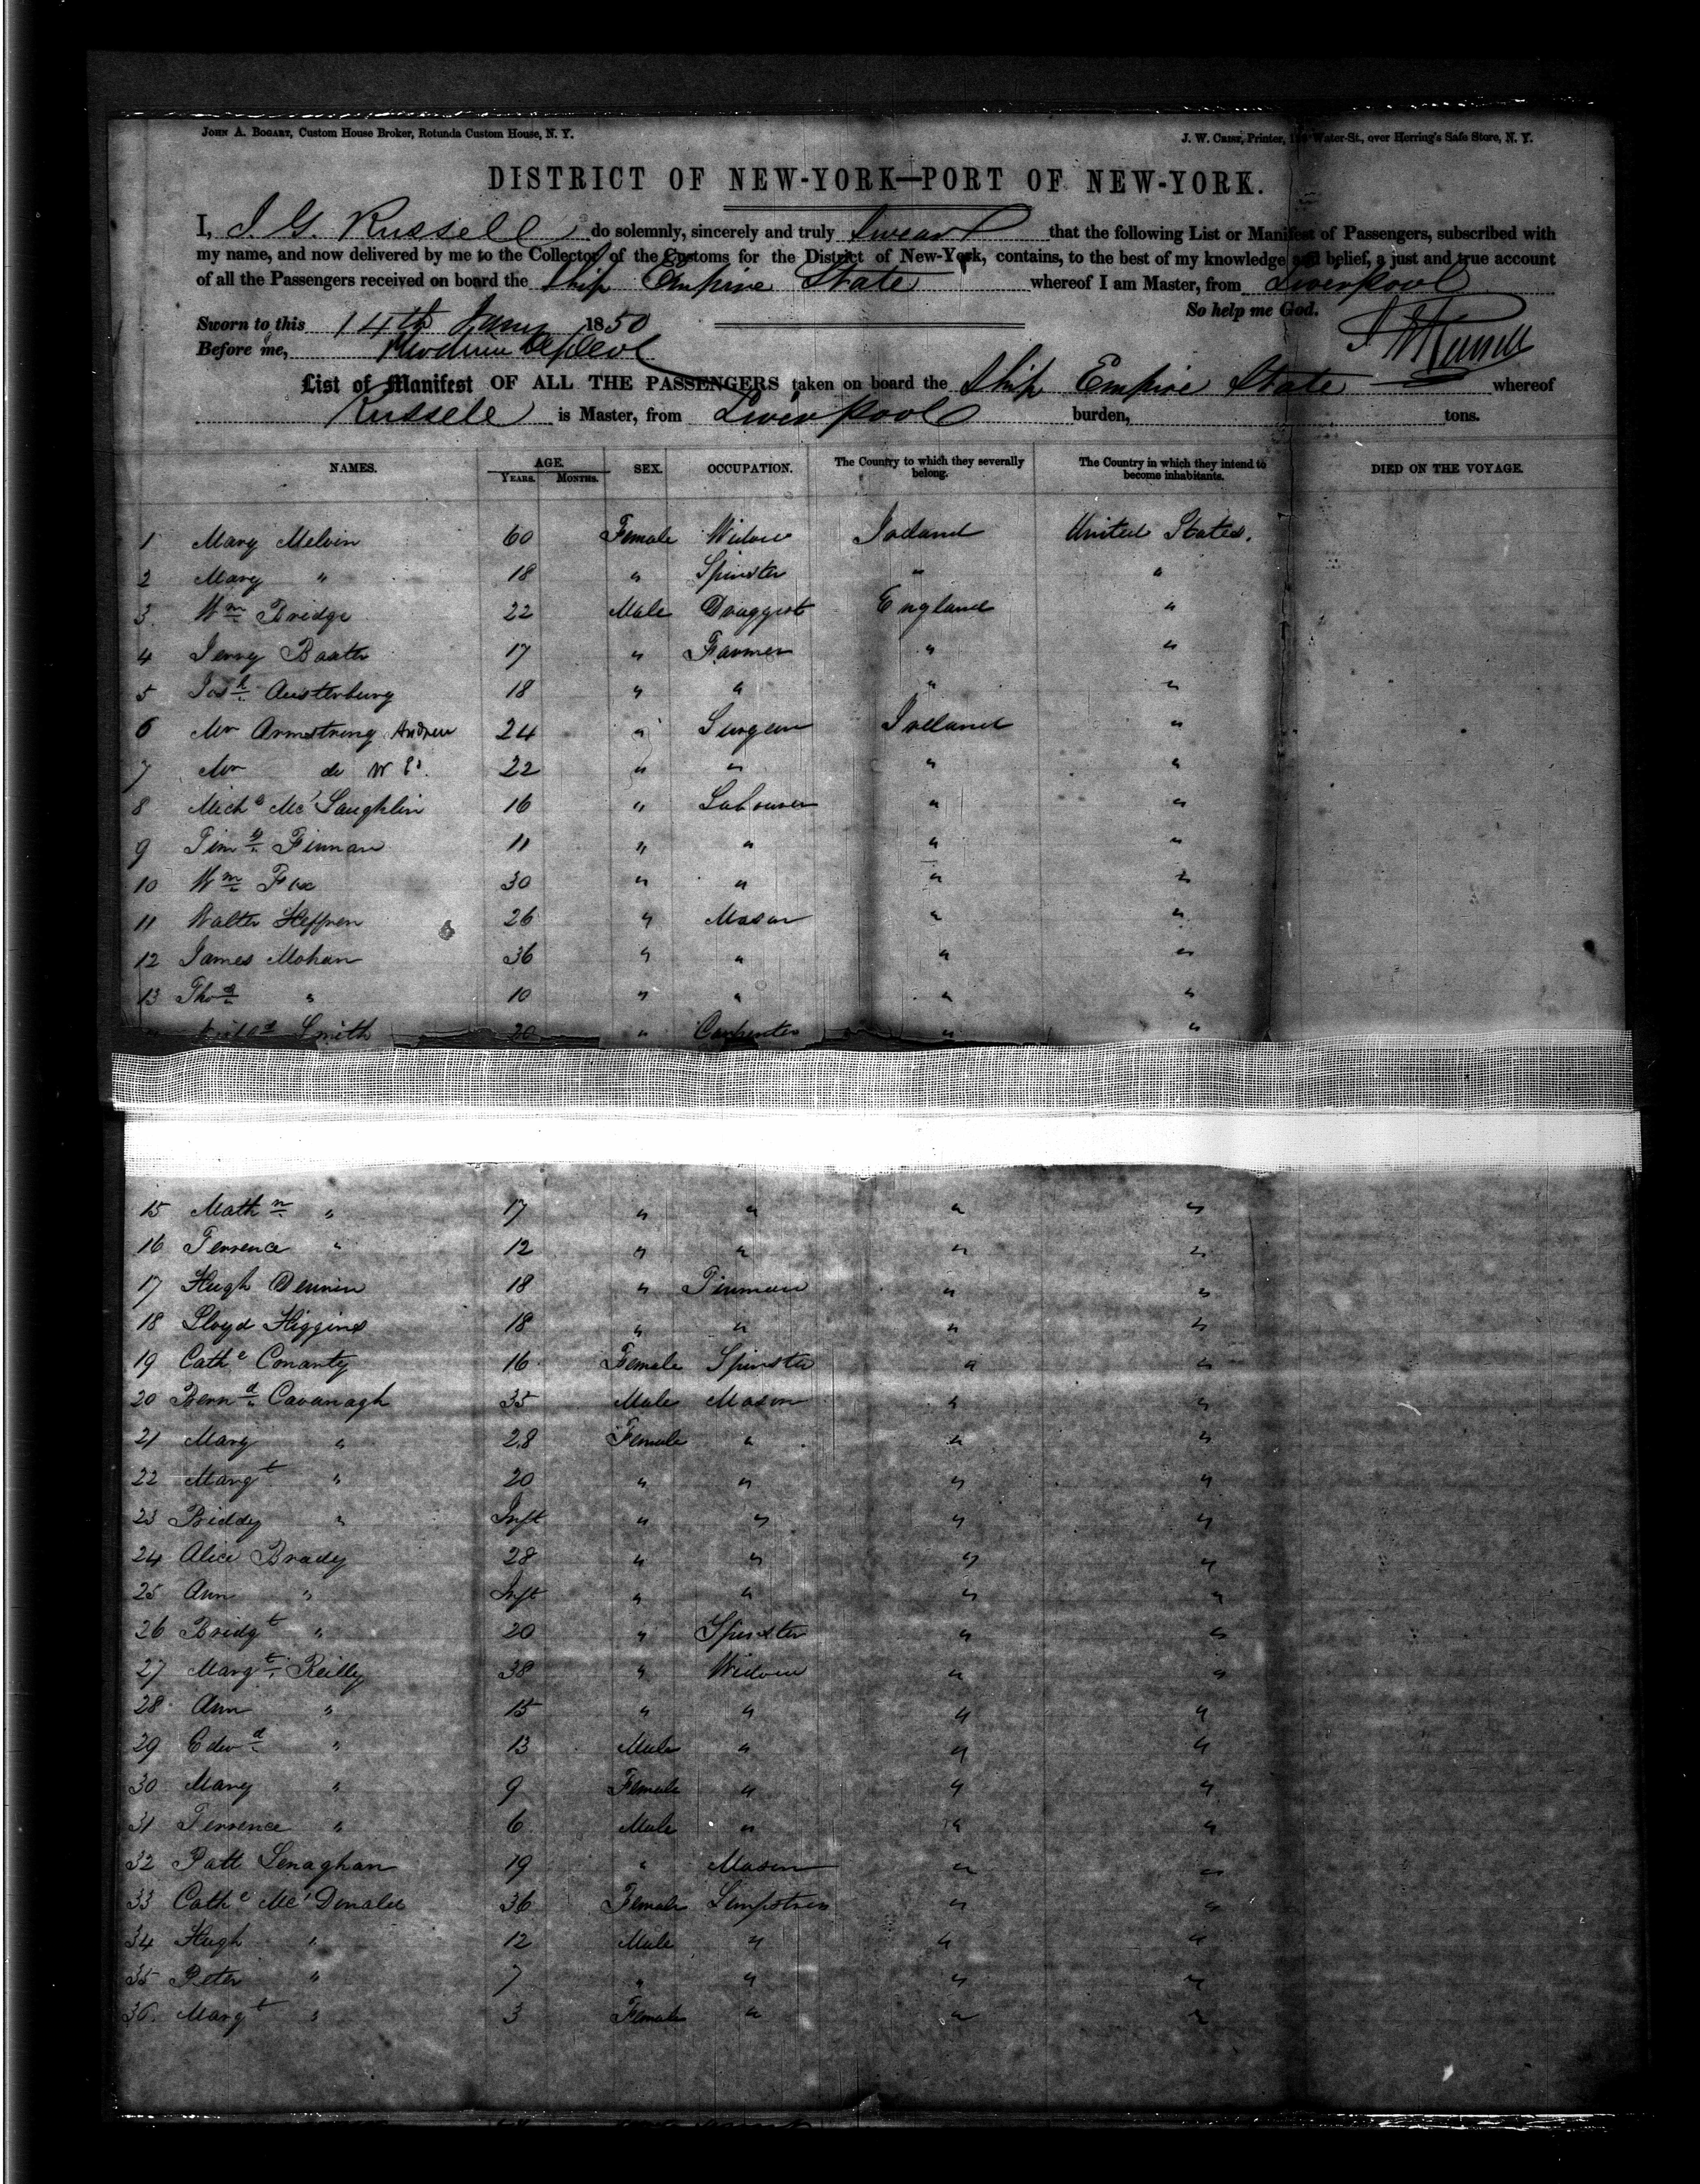 JOHN A. BOGART, Custom House Broker, Rotunda Custom House, N. Y. J. W. Printer, Water-St., over Herring's Safe Store, N. Y.
DISTRICT OF NEW-YORK—PORT OF NEW-YORK.
I, J. G. Russell do solemnly, sincerely and truly Swear that the following List or Manifest of Passengers, subscribed with
my name, and now delivered by me to the Collector of the Customs for the District of New-York, contains, to the best of my knowledge and belief, a just and true account
of all the Passengers received on board the Ship Empire State whereof I am Master, from Liverpool
So help me God.
Sworn to this 14th Jany 1850 J G Russell
Before me,
List of Manifest OF ALL THE PASSENGERS taken on board the Ship Empire State whereof
Russell is Master, from Liverpool burden, tons.
NAMES. AGE. SEX. OCCUPATION. The Country to which they severally belong. The Country in which they intend to become inhabitants. DIED ON THE VOYAGE.
YEARS. MONTHS.
1 Mary Melvin 60 Female Widow Ireland United States.
2 Mary " 18 " Spinster " "
3 Wm Bridge 22 Male Druggist England "
4 Jerry Baxter 17 " Farmer " "
5 Josh Austerbury 18 " " " "
6 Mr Armstrong Andrew 24 " Surgeon Ireland "
7 Mr do Wm 22 " " " "
8 Michl McLaughlin 16 " Labourer " "
9 Timy Finnan 11 " " " "
10 Wm Fox 30 " " " "
11 Walter Heffren 26 " Mason " "
12 James Mohan 36 " " " "
13 Thos " 10 " " " "
Smith 20 " Carpenter " "
15 Mathw " 17 " " " "
16 Terrence " 12 " " " "
17 Hugh Dennin 18 " Tinman " "
18 Lloyd Higgins 18 " " " "
19 Cathe Conanty 16 Female Spinster " "
20 Bernd Cavanagh 35 Male Mason " "
21 Mary " 28 Female " " "
22 Margt " 20 " " " "
23 Biddy " Inft " " " "
24 Alice Brady 28 " " " "
25 Ann " Inft " " " "
26 Bridgt " 20 " Spinster " "
27 Margt Reilly 38 " Widow " "
28 Ann " 15 " " " "
29 Edwd " 13 Male " " "
30 Mary " 9 Female " " "
31 Terrence " 6 Male " " "
32 Patt Lenaghan 19 " Mason " "
33 Cathe McDonald 36 Female Sempstress " "
34 Hugh " 12 Male " " "
35 Peter " 7 " " " "
36 Margt " 3 Female " " "